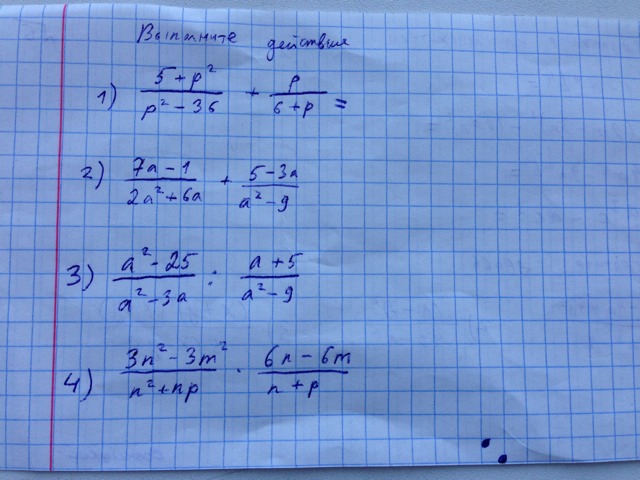 Выполните действия
1) \frac{5+p^2}{p^2-36} + \frac{p}{6+p} =
2) \frac{7a-1}{2a^2+6a} + \frac{5-3a}{a^2-9}
3) \frac{a^2-25}{a^2-3a} : \frac{a+5}{a^2-9}
4) \frac{3n^2-3m^2}{n^2+np} \cdot \frac{6n-6m}{n+p}